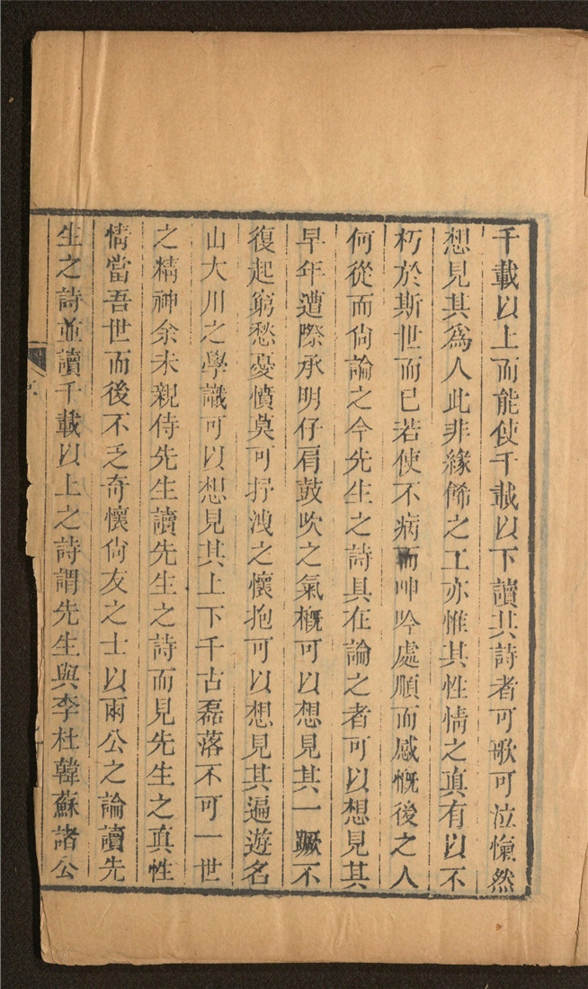 千載以上而能使千載以下讀其詩者可歌可泣愾然
想見其爲人此非緣飾之工亦惟其性情之眞有以不
朽於斯世而已若使不病而呻吟處順而感慨後之人
何從而尙論之今先生之詩具在論之者可以想見其
早年遭際承明仔肩鼓吹之氣槪可以想見其一蹶不
復起窮愁憂憤莫可抒洩之懷抱可以想見其遍遊名
山大川之學識可以想見其上下千古磊落不可一世
之精神余未親侍先生讀先生之詩而見先生之眞性
情當吾世而後不乏奇懷尙友之士以兩公之論讀先
生之詩並讀千載以上之詩謂先生與李杜韓蘇諸公